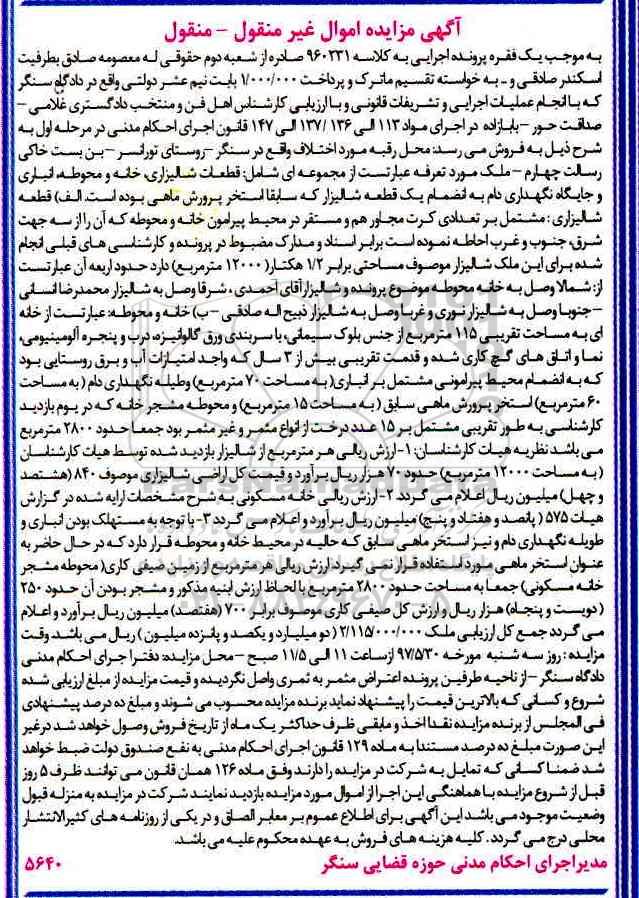 آگهی مزایده اموال غیر منقول - منقول
به موجب یک فقره پرونده اجرایی به کلاسه ۹۶۰۲۳۱ صادره از شعبه دوم حقوقی له معصومه صادق بطرفیت
اسکندر صادقی و ـ به خواسته تقسیم ماترک و پرداخت ۱/۰۰۰/۰۰۰ بابت نیم عشر دولتی واقع در دادگاه سنگر
که با انجام عملیات اجرایی و تشریفات قانونی و با ارزیابی کارشناس اهل فن و منتخب دادگستری غلامی -
صداقت حور - بابازاده در اجرای مواد ۱۱۳ الی ۱۳۶ / ۱۳۷ الی ۱۴۷ قانون اجرای احکام مدنی در مرحله اول به
شرح ذیل به فروش می رسد: محل رقبه مورد اختلاف واقع در سنگر - روستای تورانسر - بن بست خاکی
رسالت چهارم - ملک مورد تعرفه عبارتست از مجموعه ای شامل: قطعات شالیزاری، خانه و محوطه، انباری
و جایگاه نگهداری دام به انضمام یک قطعه شالیزار که سابقا استخر پرورش ماهی بوده است. الف) قطعه
شالیزاری: مشتمل بر تعدادی کرت مجاور هم و مستقر در محیط پیرامون خانه و محوطه که آن را از سه جهت
شرق، جنوب و غرب احاطه نموده است برابر اسناد و مدارک مضبوط در پرونده و کارشناسی های قبلی انجام
شده برای این ملک شالیزار موصوف مساحتی برابر ۱/۲ هکتار (۱۲۰۰۰ مترمربع) دارد حدود اربعه آن عبارتست
از: شمالا وصل به خانه محوطه موضوع پرونده و شالیزار آقای احمدی، شرقا وصل به شالیزار محمدرضا انسانی
- جنوبا وصل به شالیزار نوری و غربا وصل به شالیزار ذبیح اله صادقی - ب) خانه و محوطه: عبارتست از خانه
ای به مساحت تقریبی ۱۱۵ مترمربع از جنس بلوک سیمانی، با سربندی ورق گالوانیزه، درب و پنجره آلومینیومی،
نما و اتاق های گچ کاری شده و قدمت تقریبی بیش از ۳ سال که واجد امتیازات آب و برق روستایی بود
که به انضمام محیط پیرامونی مشتمل بر انباری (به مساحت ۷۰ مترمربع) وطیله نگهداری دام (به مساحت
۶۰ مترمربع) استخر پرورش ماهی سابق (به مساحت ۱۵ مترمربع) و محوطه مشجر خانه که در یوم بازدید
کارشناسی به طور تقریبی مشتمل بر ۱۵ عدد درخت از انواع مثمر و غیر مثمر بود جمعا حدود ۲۸۰۰ مترمربع
می باشد نظریه هیات کارشناسان: ۱- ارزش ریالی هر مترمربع از شالیزار بازدید شده توسط هیات کارشناسان
(به مساحت ۱۲۰۰۰ مترمربع) حدود ۷۰ هزار ریال برآورد و قیمت کل اراضی شالیزاری موصوف ۸۴۰ (هشتصد
و چهل) میلیون ریال اعلام می گردد. ۲- ارزش ریالی خانه مسکونی به شرح مشخصات ارایه شده در گزارش
هیات ۵۷۵ (پانصد و هفتاد و پنج) میلیون ریال برآورد و اعلام می گردد ۳- با توجه به مستهلک بودن انباری و
طویله نگهداری دام و نیز استخر ماهی سابق که حالیه در محیط خانه و محوطه قرار دارد که در حال حاضر به
عنوان استخر ماهی مورد استفاده قرار نمی گیرد. ارزش ریالی هر مترمربع از زمین صیفی کاری (محوطه مشجر
خانه مسکونی) جمعا به مساحت حدود ۲۸۰۰ مترمربع با لحاظ ارزش ابنیه مذکور و مشجر بودن آن حدود ۲۵۰
(دویست و پنجاه) هزار ریال و ارزش کل صیفی کاری موصوف برابر ۷۰۰ (هفتصد) میلیون ریال برآورد و اعلام
می گردد جمع کل ارزیابی ملک ۲/۱۱۵/۰۰۰/۰۰۰ (دو میلیارد و یکصد و پانزده میلیون) ریال می باشد. وقت
مزایده: روز سه شنبه مورخه ۹۷/۵/۳۰ از ساعت ۱۱ الی ۱۱/۵ صبح - محل مزایده: دفتر اجرای احکام مدنی
دادگاه سنگر - از ناحیه طرفین پرونده اعتراض مثمر به ثمری واصل نگردیده و قیمت مزایده از مبلغ ارزیابی شده
شروع و کسانی که بالاترین قیمت را پیشنهاد نماید برنده مزایده محسوب می شوند و مبلغ ده درصد پیشنهادی
فی المجلس از برنده مزایده نقدا اخذ و مابقی ظرف حداکثر یک ماه از تاریخ فروش وصول خواهد شد در غیر
این صورت مبلغ ده درصد مستندا به ماده ۱۲۹ قانون اجرای احکام مدنی به نفع صندوق دولت ضبط خواهد
شد ضمنا کسانی که تمایل به شرکت در مزایده را دارند وفق ماده ۱۲۶ همان قانون می توانند ظرف ۵ روز
قبل از شروع مزایده با هماهنگی این اجرا از اموال مورد مزایده بازدید نمایند شرکت در مزایده به منزله قبول
وضعیت موجود می باشد این آگهی برای اطلاع عموم بر معابر الصاق و در یکی از روزنامه های کثیرالانتشار
محلی درج می گردد. کلیه هزینه های فروش به عهده محکوم علیه می باشد.
مدیر اجرای احکام مدنی حوزه قضایی سنگر
۵۶۴۰